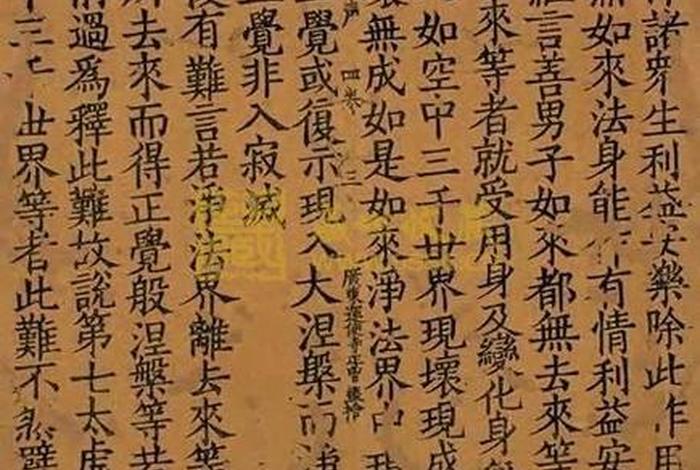 諸衆生利益安樂除此作用
如來法身能作有情利益安
言善男子如來都無去來等
來等者就受用身及變化身
如空中三千世界現壞現成
無成如是如來淨法界中
四卷
三
廣東運使寺正曾噩捨
覺或復示現入大涅槃而淨
覺非入寂滅
有難言若淨法界離去來等
去來而得正覺般涅槃等若
過爲釋此難故說第七太虛
三千世界等者此難不然譬